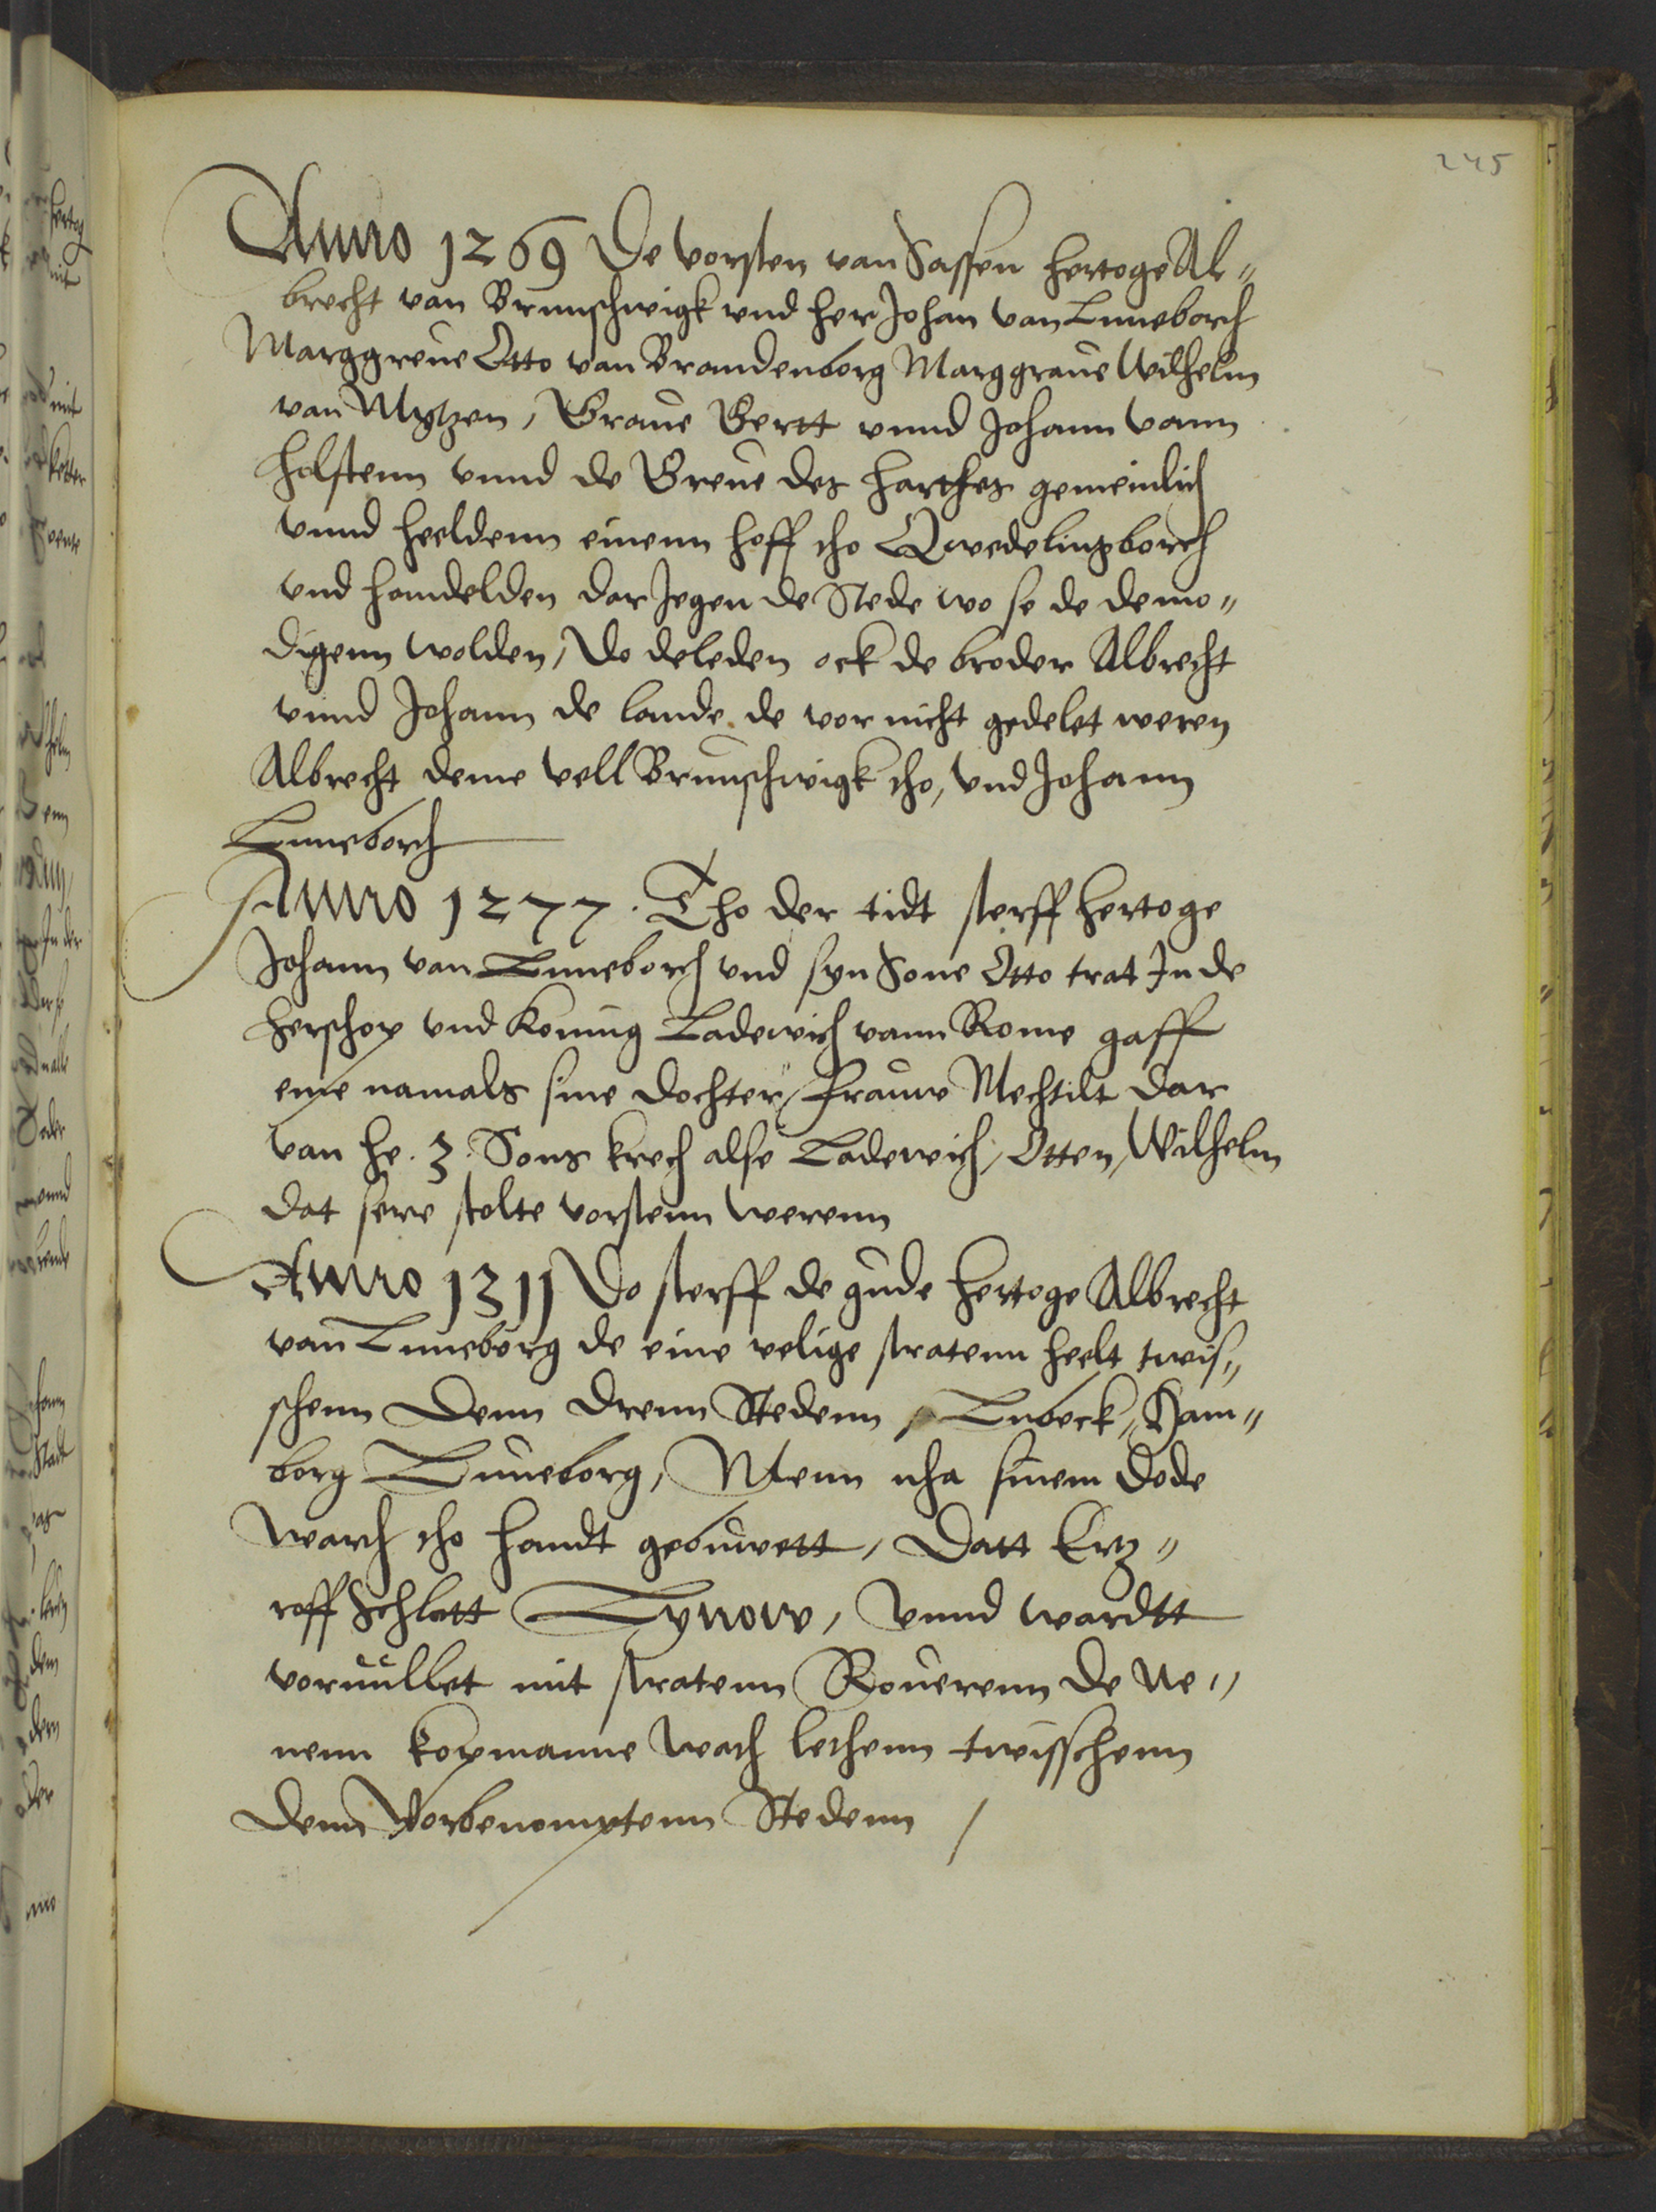 245
Anno 1269 De vorsten van Sassen hertoge Al„
brecht van Brunschwigk vnd her Johan van Luneborch
Marggreue Otto van Brandenborg Marggraue Wilhelm
van Mytzen, Graue Gertt vnnd Johann vann
Holstenn vnnd de Greue des Harthes gemeinlich
vnnd heeldenn einenn hoff tho Qwedelingborch
vnd handelden dar Jegen de Stede wo se de demo„
digenn wolden, Do deleden ock de broder Albrecht
vnnd Johann de lande de vor nicht gedelet weren
Albrecht deme vell Brunschwigk tho, vnd Johann
Luneborch
Anno 1277. Tho der tidt sterff hertoge
Johann van Luneborch vnd syn Sone Otto trat In de
herschop vnd Koning Ladewich vann Rome gaff
eme namals sine dochter, frauwe Mechtilt dar
van he .3. Sons krech alse Ladewich, Otten, Wilhelm
dat sere stolte vorstenn werenn
Anno 1311 Do sterff de gude hertoge Albrecht
van Luneborg de eine velige stratenn heelt twis„
schenn denn drenn Stedenn, Lubeck, Ham„
borg Luneborg, Menn nha sinem dode
warch tho handt gebuwett, Datt Ertz„
roff Schlott Lynow, vnnd wardtt
voruullet mit stratenn Rouerenn de Ne„
nenn kopmanne wech lethenn twisschenn
denn Vorbenomptenn Stedenn /